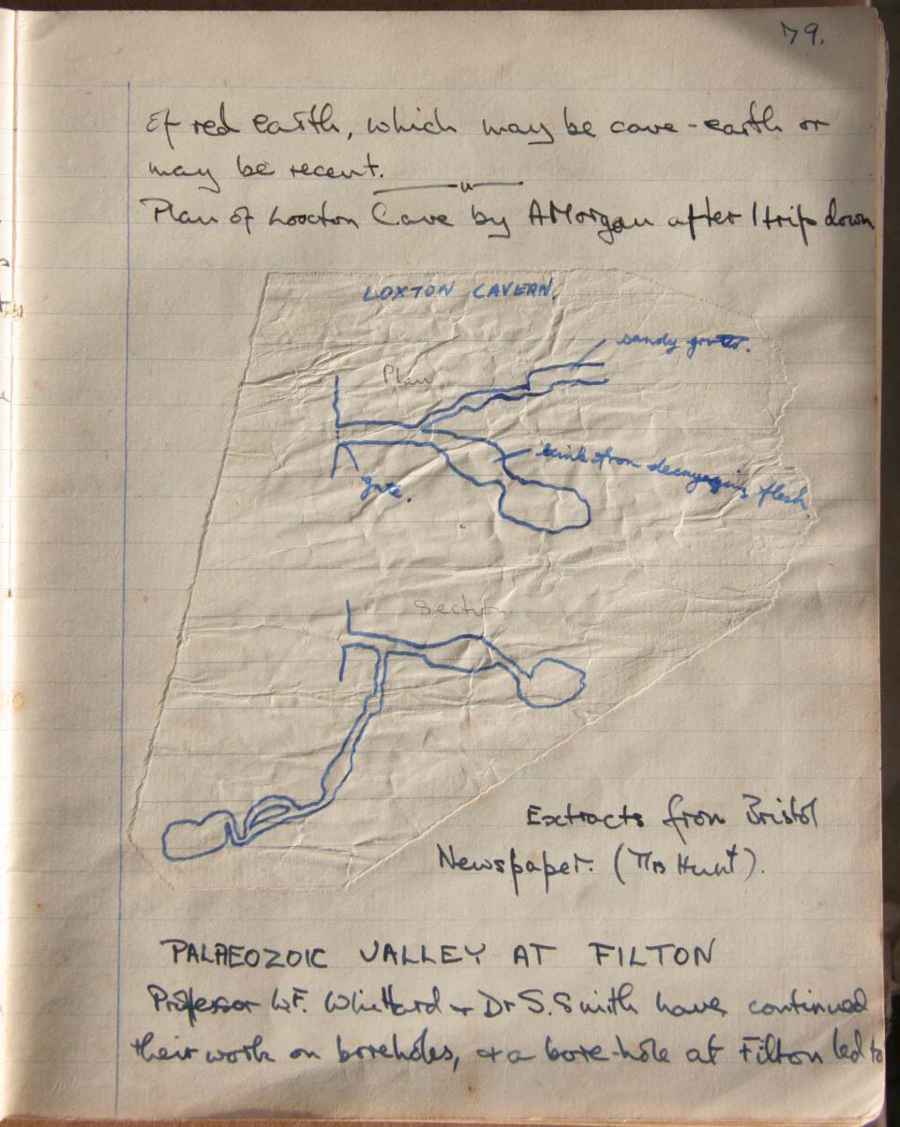 79.
of red earth, which may be cave-earth or
may be recent.
Plan of Loxton Cave by A Morgan after 1 trip down
LOXTON CAVERN.
sandy grotto.
Plan
stink from decayaging flesh.
gate.
Section
Extracts from Bristol
Newspaper. (Hunt).
PALAEOZOIC VALLEY AT FILTON
Professor W.F. Whittard + Dr S. Smith have continued
their work on boreholes, + a bore-hole at Filton led to